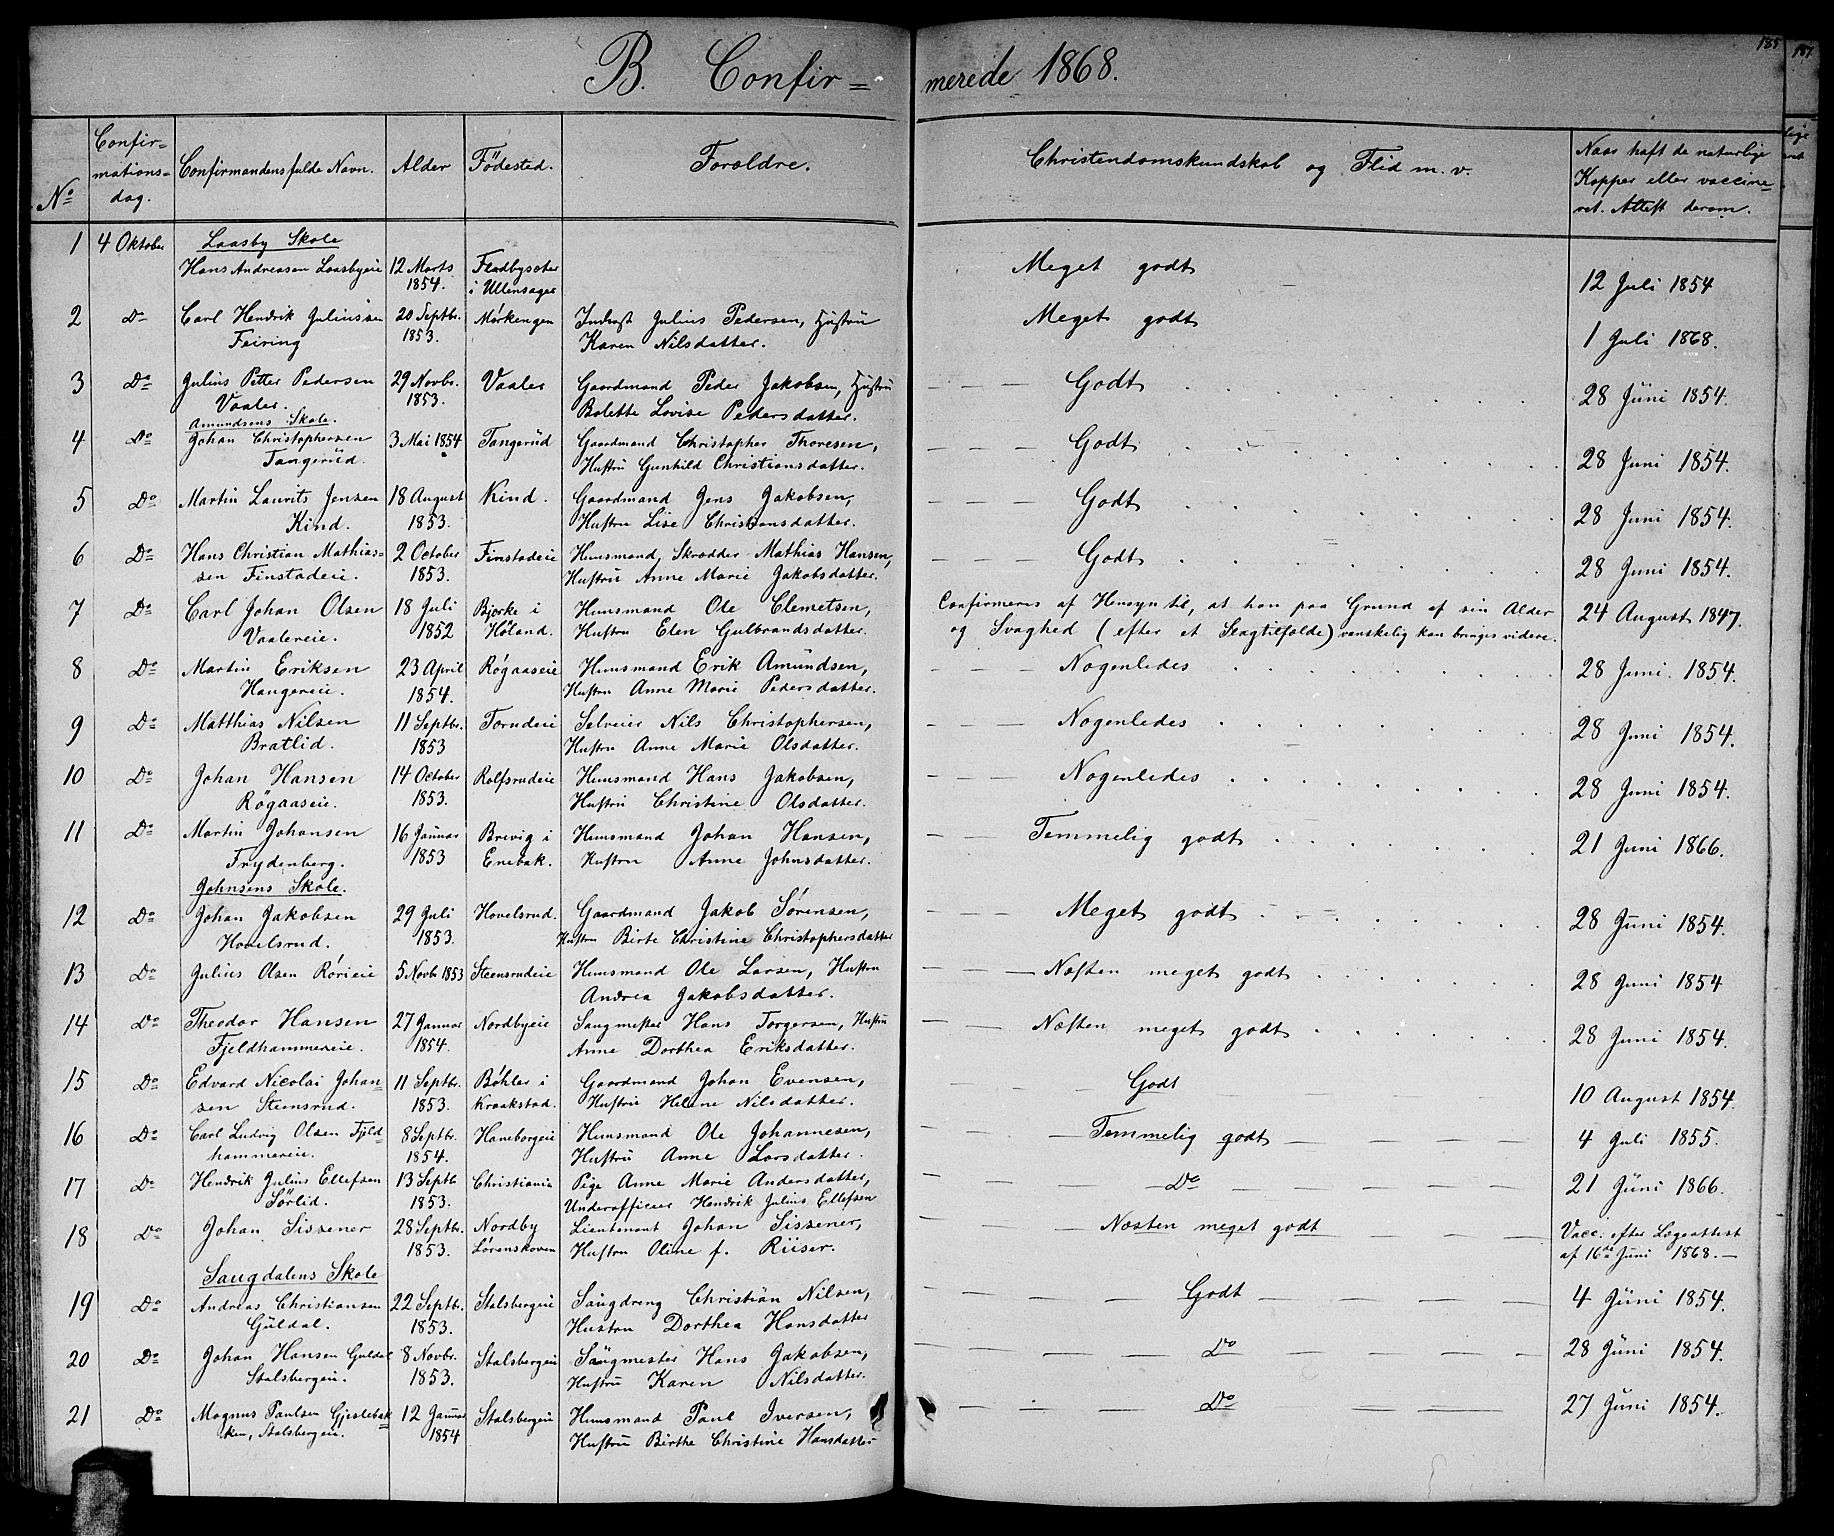 185
187
B. Confir= merede 1868.
No
Confir=
mations=
dag.
Confirmandens fulde Navn.
Alder
Födested.
Forældre.
Christendomskundskab og Flid m. v.
Naar haft de naturlige
Kopper eller vaccine=
ret. Attest derom.
1 4 Oktober Laasby Skole
Hans Andreasen Laasbyeie 12 Marts Meget godt
1854. i Ullensager 12 Juli 1854
2 Do Carl Hendrik Juliussen 20 Septbr. Mørkengen Inderst Julius Pedersen, Hustru Meget godt
Feiring 1853. Karen Nilsdatter. 1 Juli 1868.
3 Do Julius Petter Pedersen 29 Novbr. Vaaler Gaardmand Peder Jakobsen, Hustru — — — Godt
Vaaler. 1853. Bolette Lovise Pedersdatter. 28 Juni 1854.
Amundsens Skole.
4 Do Johan Christophersen 3 Mai 1854 Tangerud Gaardmand Christopher Thoresen, — — — Godt
Tangerud. Hustru Gunhild Christiansdatter. 28 Juni 1854.
5 Do Martin Laurits Jensen 18 August Kind. Gaardmand Jens Jakobsen, — — — Godt
Kind. 1853. Hustru Lise Christiansdatter. 28 Juni 1854.
6 Do Hans Christian Mathias= 2 October Finstadeie Huusmand, Skrædder Mathias Hansen, — — — Godt
sen Finstadeie. 1853. Hustru Anne Marie Jakobsdatter. 28 Juni 1854.
7 Do Carl Johan Olsen 18 Juli Bjerke i Huusmand Ole Clemetsen, Confirmeres af Hensyn til, at han paa Grund af sin Alder 24 August 1847.
Vaalereie. 1852 Høland. Hustru Elen Gulbrandsdatter. og Svaghed (efter et Slagtilfælde) vanskelig kan bringes videre.
8 Do Martin Eriksen 23 April Røgaaseie Huusmand Erik Amundsen, — — — Nogenledes
Haugereie. 1854. Hustru Anne Marie Pedersdatter. 28 Juni 1854.
9 Do Matthias Nilsen 11 Septbr. Torudeie Selveier Nils Christophersen, — — — Nogenledes
Bratlid. 1853 Hustru Anne Marie Olsdatter. 28 Juni 1854.
10 Do Johan Hansen 14 October Rolfsrudeie Huusmand Hans Jakobsen, — — — Nogenledes
Røgaaseie. 1853. Hustru Christine Olsdatter. 28 Juni 1854.
11 Do Martin Johansen 16 Januar Brevig i Huusmand Johan Hansen, — — — Temmelig godt
Frydenberg. 1853 Enebak. Hustru Anne Johnsdatter. 21 Juni 1866.
Johnsens Skole.
12 Do Johan Jakobsen 29 Juli Hovelsrud. Gaardmand Jakob Sørensen, — — — Meget godt
Hovelsrud. 1853. Hustru Birte Christine Christophersdatter 28 Juni 1854.
13 Do Julius Olsen Rørieie 5 Novb 1853 Steensrudeie Huusmand Ole Larsen, Hustru — — — Næsten meget godt
Andrea Jakobsdatter. 28 Juni 1854
14 Do Theodor Hansen 27 Januar Nordbyeie Saugmester Hans Torgersen, Hustru — — — Næsten meget godt
Fjeldhammereie. 1854. Anne Dorthea Eriksdatter. 28 Juni 1854.
15 Do Edvard Nicolai Johan= 11 Septbr. Bøhler i Gaardmand Johan Evensen, Godt
sen Steensrud. 1853. Kraakstad. Hustru Helene Nilsdatter. 10 August 1854.
16 Do Carl Ludvig Olsen Fjeld= 8 Septbr. Haneborgeie Huusmand Ole Johannesen, — — — Temmelig godt
hammereie. 1854. Hustru Anne Larsdatter. 4 Juli 1855.
17 Do Hendrik Julius Ellefsen 13 Septbr Christiania Pige Anne Marie Andersdatter, Do
Sørlid. 1853. Underofficeer Hendrik Julius Ellefsen 21 Juni 1866.
18 Do Johan Sissener 28 Septbr. Nordby Lieutenant Johan Sissener, Næsten meget godt Vacc. efter Lægeattest
1853. Lørenskoven Hustru Oline f. Riiser. af 16de Juni 1868.—
Saugdalens Skole
19 Do Andreas Christiansen 22 Septbr. Stalsbergeie Saugdreng Christian Nilsen, Godt 4 Juni 1854.
Guldal. 1853. Hustru Dorthea Hansdatter
20 Do Johan Hansen Guldal 8 Novbr. Stalsbergeie Saugmester Hans Jakobsen, Do 28 Juni 1854.
Stalsbergeie. 1853. Hustru Karen Nilsdatter.
21 Do Magnus Paulsen Gjeslebak= 12 Januar Stalsbergeie Huusmand Paul Iversen, Do 27 Juni 1854.
ken, Stalsbergeie. 1854 Hustru Birthe Christine Hansdatter